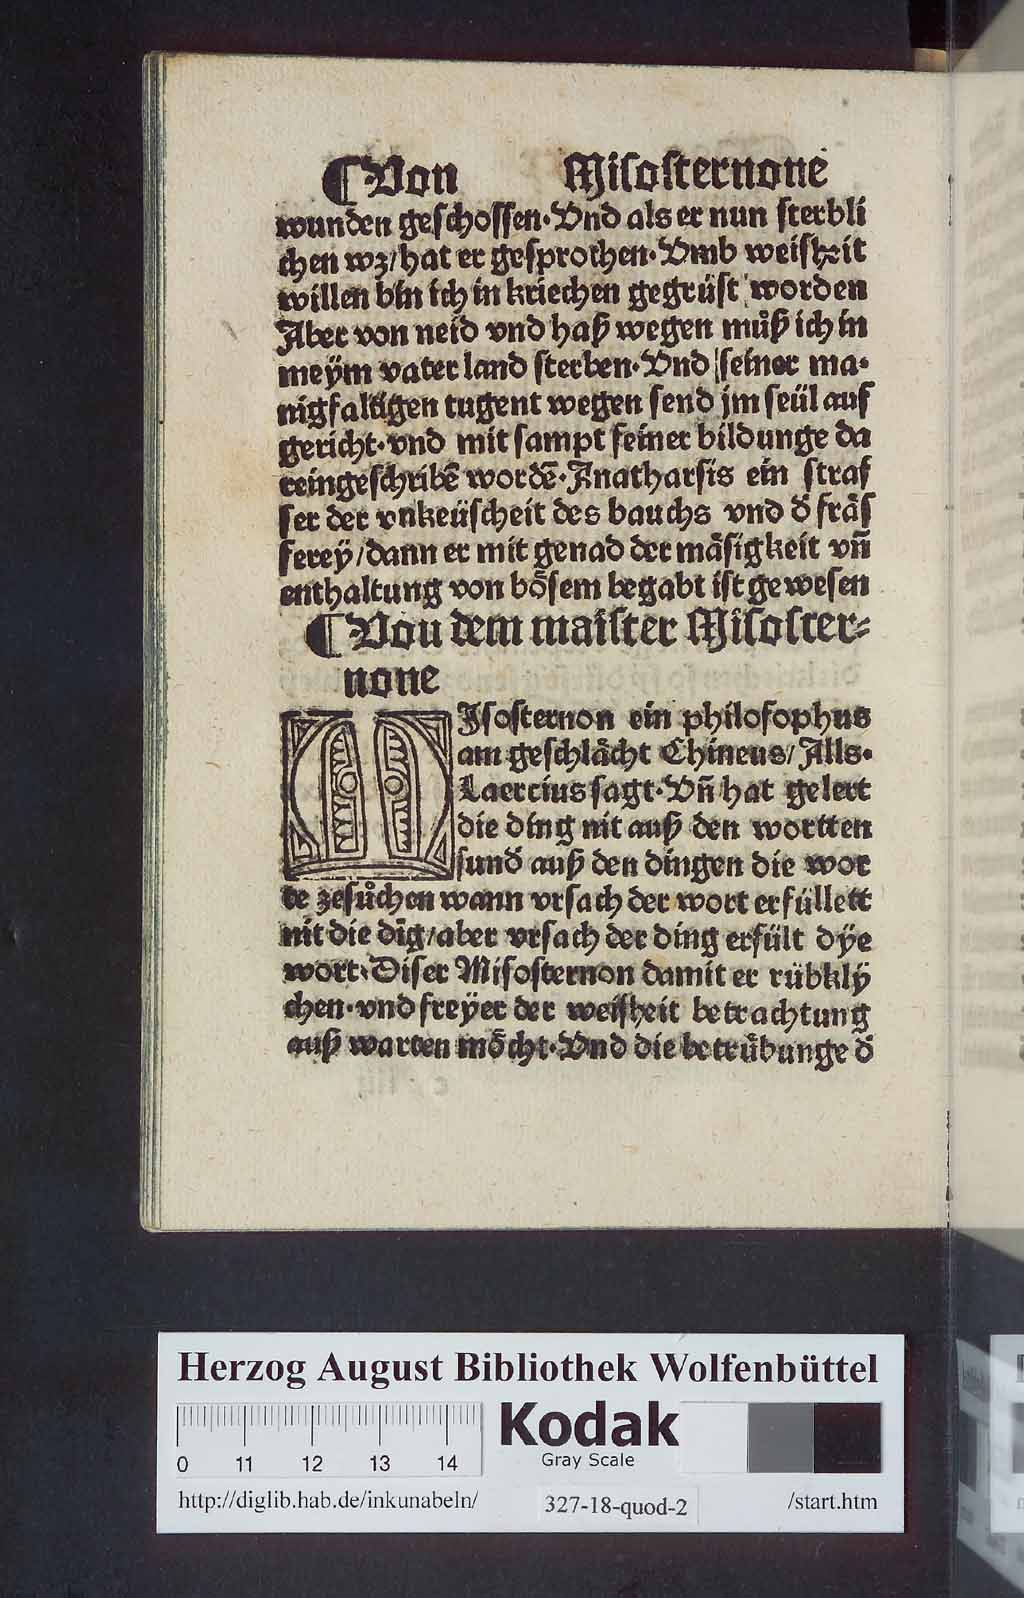 ¶Von Misosternone
wunden geschossen·Vnd als er nun sterbli
chen wz/hat er gesprochen·Vmb weisheit
willen bin ich in kriechen gegrüst worden
Aber von neid vnd haß wegen můß ich in
meÿm vater land sterben·Vnd seiner ma⸗
nigfaltigen tugent wegen send jm seül auf
gericht·vnd mit sampt seiner bildunge da
reingeschribē wordē·Anatharsis ein straf
ser der vnkeüscheit des bauchs vnd ď fräs
serey/dann er mit genad der mäsigkeit vn̄
enthaltung von bösem begabt ist gewesen
¶Vou dem maister Misoster⸗
none
MIsosternon ein philosophus
am geschlächt Chineus/Alls·
Laercius sagt·Vn̄ hat gelert
die ding nit auß den wortten
sund̕ auß den dingen die wor
te zesůchen wann vrsach der wort erfüllett
nit die dīg/aber vrsach der ding erfült dÿe
wort·Diser Misosternon damit er rübklÿ
chen·vnd freÿer der weisheit betrachtung
auß warten möcht·Vnd die betrübunge ď
Herzog August Bibliothek Wolfenbüttel
Kodak
Gray Scale
0 11 12 13 14
http://diglib.hab.de/inkunabeln/ 327-18-quod-2 /start.htm